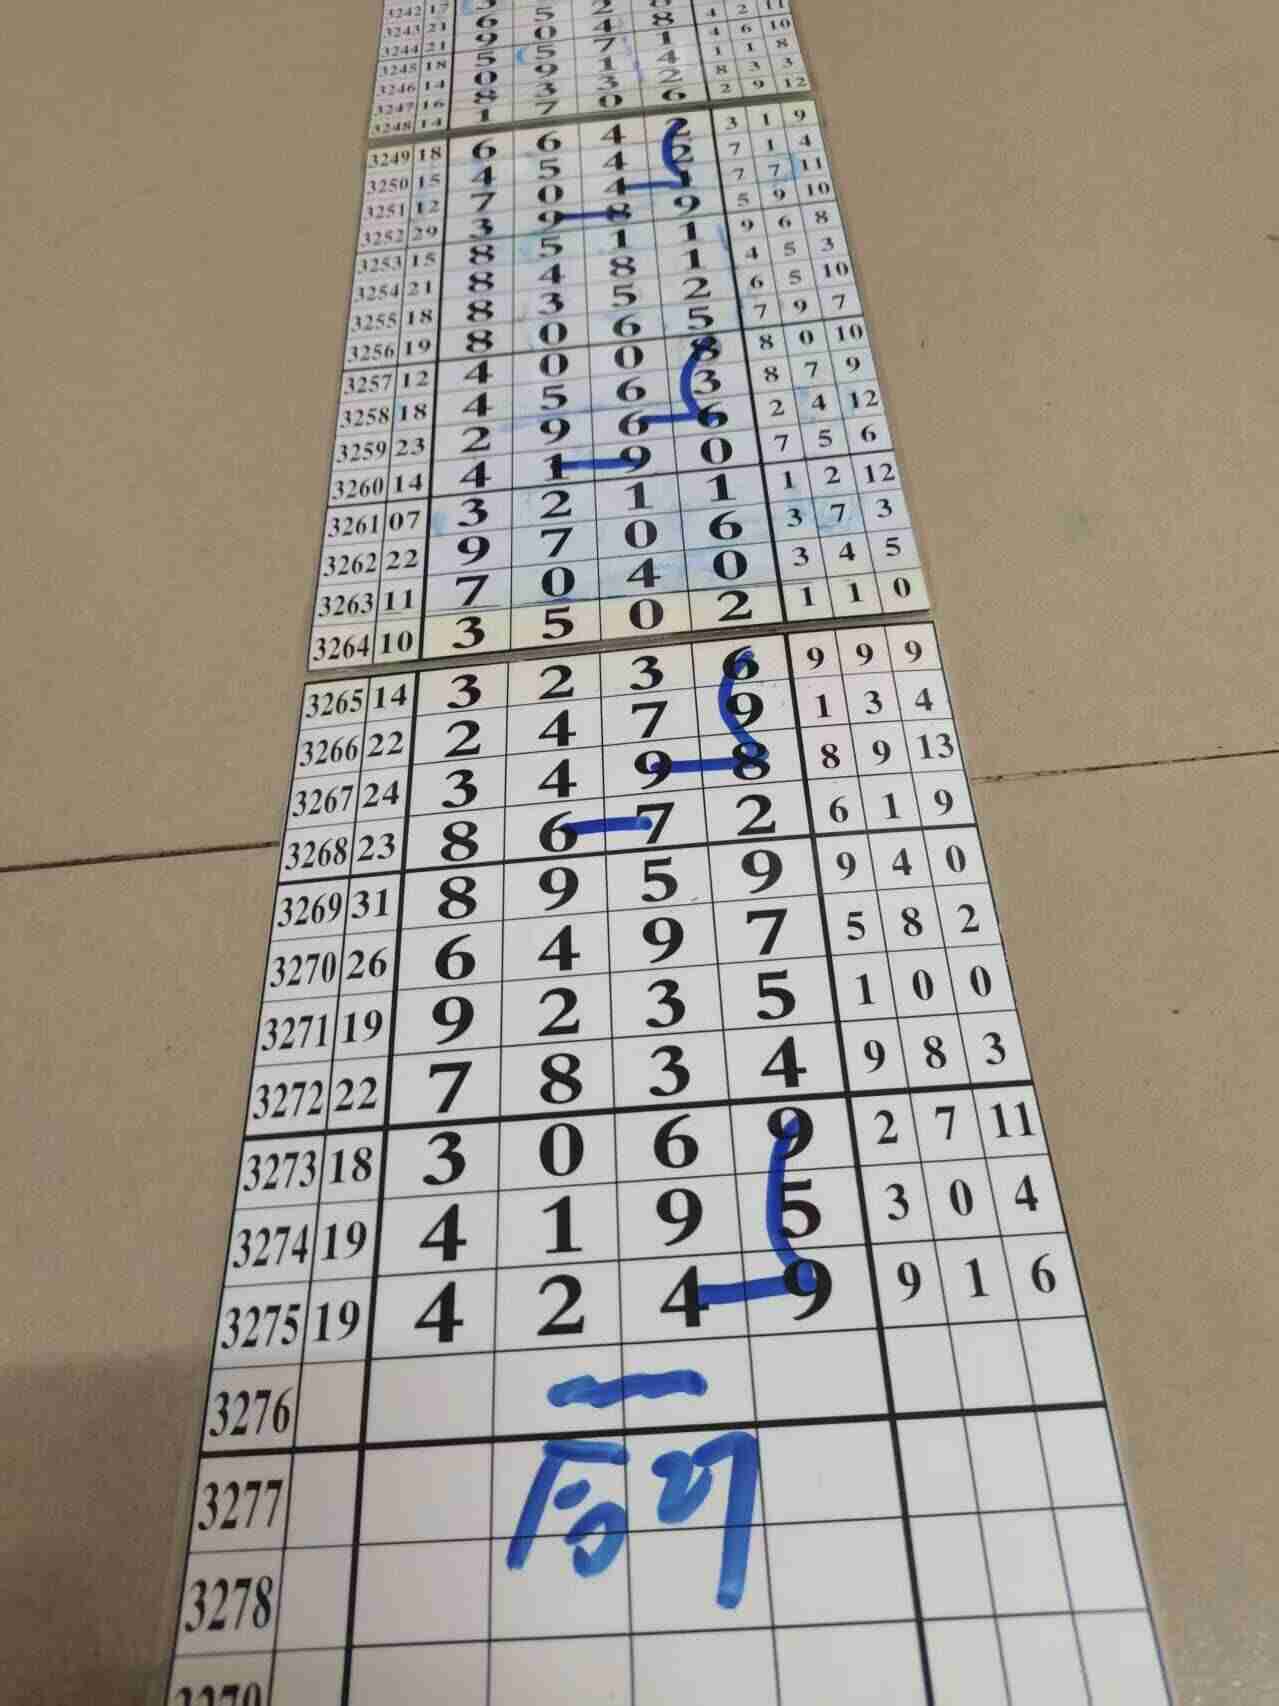 3242 17 3 5 2 4 2 11
3243 21 6 0 4 8 4 6 10
3244 21 9 5 7 1 1 1 8
3245 18 5 9 1 4 8 3 3
3246 14 0 3 3 2 2 9 12
3247 16 8 7 0 6
3248 14 1
3249 18 6 6 4 2 3 1 9
3250 15 4 5 4 2 7 1 4
3251 12 7 0 4 1 7 7 11
3252 29 3 9 8 9 5 9 10
3253 15 8 5 1 1 9 6 8
3254 21 8 4 8 1 4 5 3
3255 18 8 3 5 2 6 5 10
3256 19 8 0 6 5 7 9 7
3257 12 4 0 0 8 8 0 10
3258 18 4 5 6 3 8 7 9
3259 23 2 9 6 6 2 4 12
3260 14 4 1 9 0 7 5 6
3261 07 3 2 1 1 1 2 12
3262 22 9 7 0 6 3 7 3
3263 11 7 0 4 0 3 4 5
3264 10 3 5 0 2 1 1 0
3265 14 3 2 3 6 9 9 9
3266 22 2 4 7 9 1 3 4
3267 24 3 4 9 8 8 9 13
3268 23 8 6 7 2 6 1 9
3269 31 8 9 5 9 9 4 0
3270 26 6 4 9 7 5 8 2
3271 19 9 2 3 5 1 0 0
3272 22 7 8 3 4 9 8 3
3273 18 3 0 6 9 2 7 11
3274 19 4 1 9 5 3 0 4
3275 19 4 2 4 9 9 1 6
3276
3277
3278